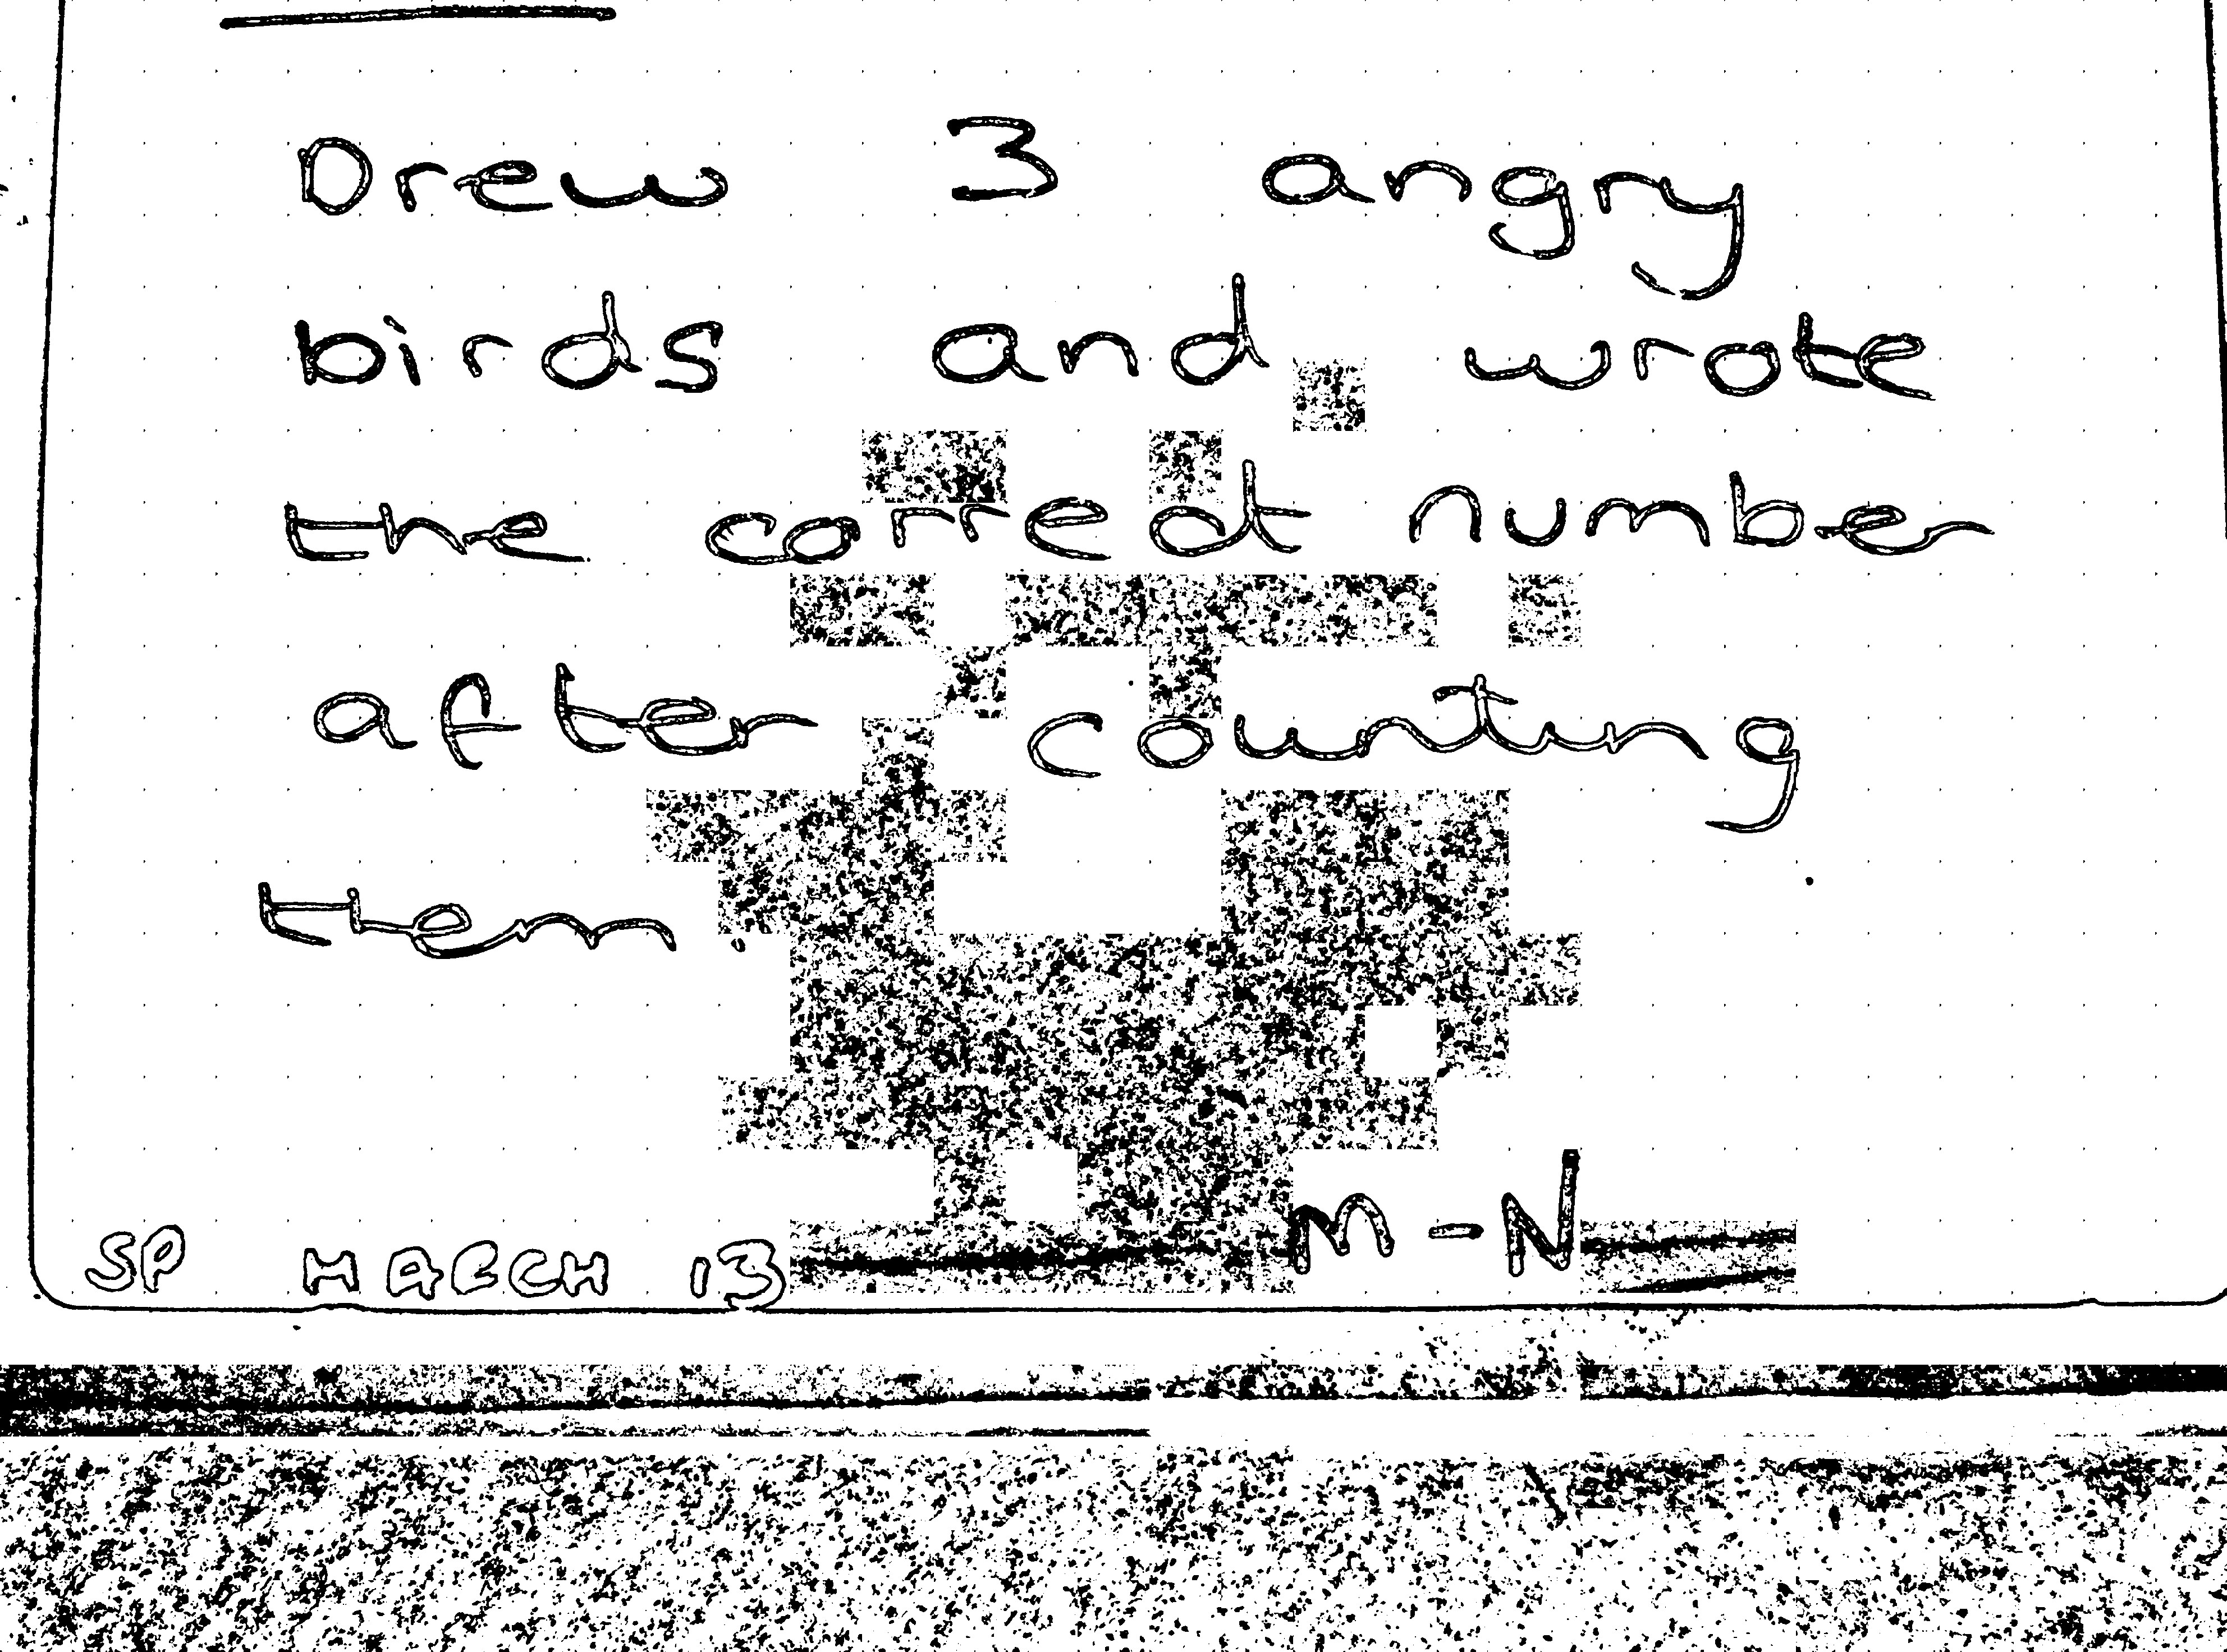 Drew 3 angry
birds and wrote
the correct number
after counting
them.
SP MARCH 13 M-N